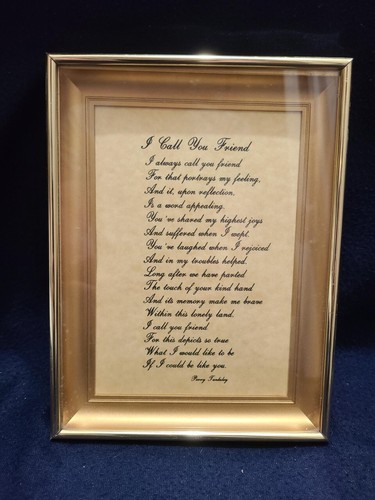 I Call You Friend
I always call you friend
For that portrays my feeling,
And it, upon reflection,
Is a word appealing.
You've shared my highest joys
And suffered when I wept.
You've laughed when I rejoiced
And in my troubles helped.
Long after we have parted
The touch of your kind hand
And its memory make me brave
Within this lonely land.
I call you friend
For this depicts so true
What I would like to be
If I could be like you.